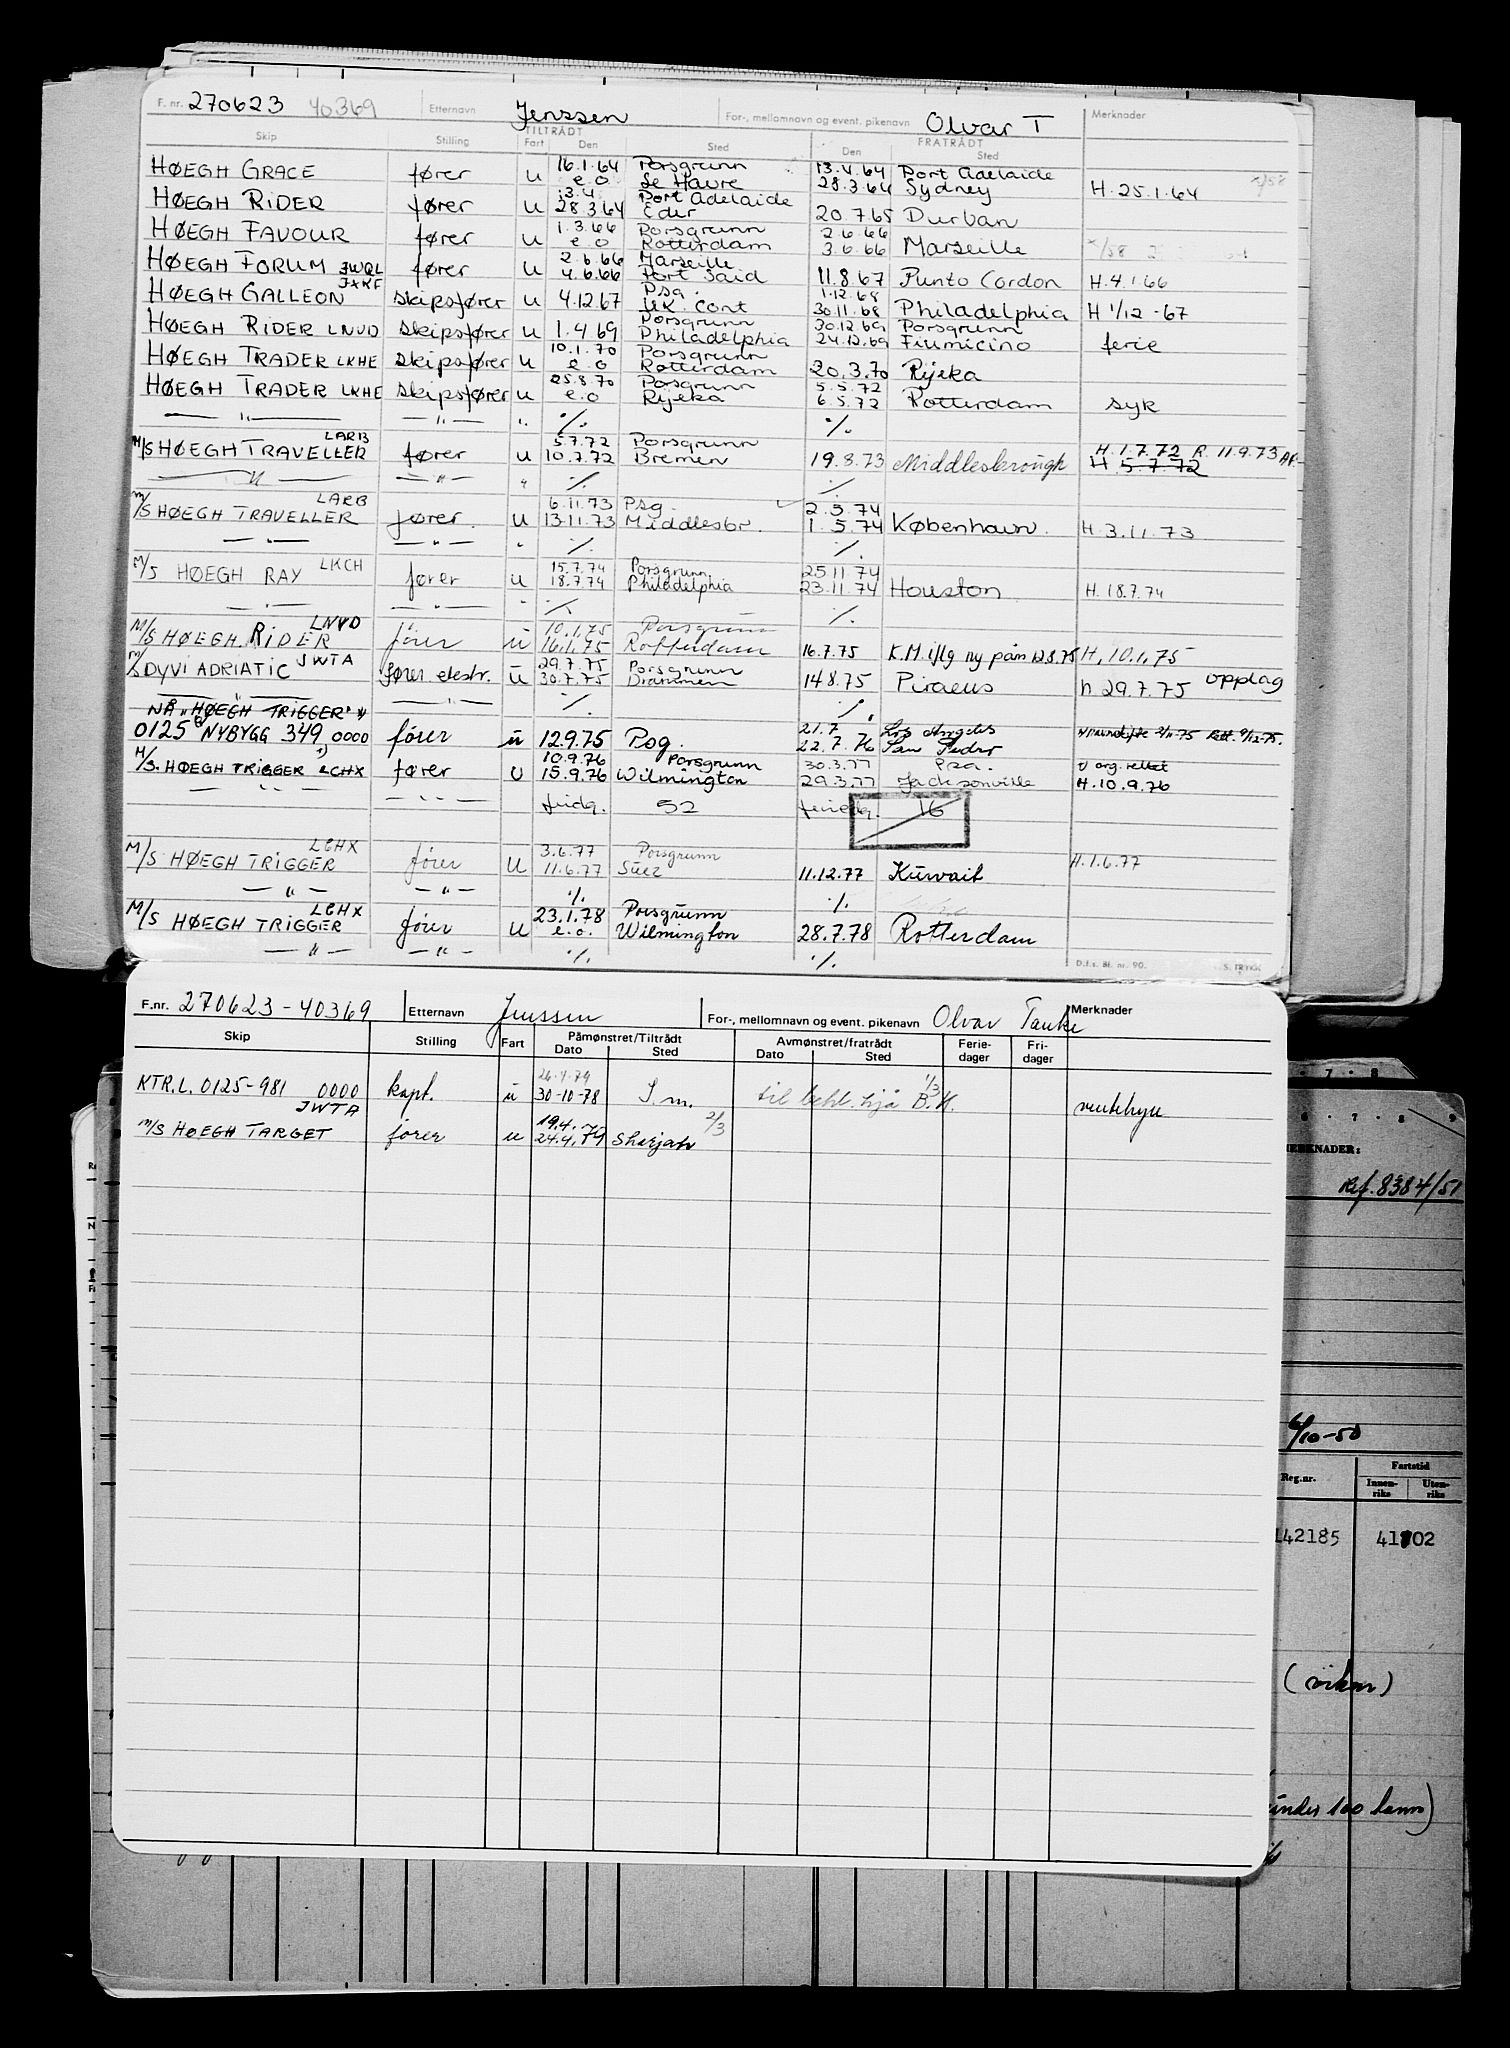 F. nr. 270623 40369 Etternavn Jenssen For-, mellomnavn og event. pikenavn Olvar T Merknader
Skip Stilling TILTRÅDT Fart Den Sted FRATRÅDT Den Sted
16.1.64 Porsgrunn 13.4.64 Port Adelaide
HØEGH GRACE fører u e.o. Le Havre 28.3.64 Sydney H. 25.1.64
13.4. Port Adelaide
HØEGH RIDER fører u 28.3.64 20.7.65 Durban
1.3.66 Porsgrunn 2.6.66
HØEGH FAVOUR fører u e.o Rotterdam 3.6.66 Marseille
2.6.66 Marseille
HØEGH FORUM JWQL fører u 4.6.66 Port Said 11.8.67 Punto Cordon H. 4.1.66
Psg. 1.12.68
HØEGH GALLEON skipsfører u 4.12.67 UK. Cont 30.11.68 Philadelphia H 1/12-67
Porsgrunn 30.12.69 Porsgrunn
HØEGH RIDER LNVD skipsfører u 1.4.69 Philadelphia 24.12.69 Fiumicino ferie
10.1.70 Porsgrunn
HØEGH TRADER LKHE skipsfører u e.o Rotterdam 20.3.70 Rijeka
25.8.70 Porsgrunn 5.5.72
HØEGH TRADER LKHE skipsfører u e.o Rijeka 6.5.72 Rotterdam syk
— " — — " — " ./. ./.
LARB 5.7.72 Porsgrunn H. 1.7.72 R. 11.9.73
M/S HØEGH TRAVELLER fører u 10.7.72 Bremen 19.8.73 Middlesbrough H. 5.7.72
— " — — " — " ./. ./.
LARB 6.11.73 Psg. 2.5.74
M/S HØEGH TRAVELLER fører u 13.11.73 Middlesbr. 1.5.74 København H. 3.11.73
— " — — " — " ./. ./.
LKCH 15.7.74 Porsgrunn 25.11.74
M/S HØEGH RAY fører u 18.7.74 Philadelphia 23.11.74 Houston H. 18.7.74
— " — — " — " ./. ./.
LNVD 10.1.75 Porsgrunn
M/S HØEGH RIDER fører u 16.1.75 Rotterdam 16.7.75 K.M iflg ny påm 12.8.75 H. 10.1.75
JWTA 29.7.75 Porsgrunn
M/S DYVI ADRIATIC fører ekstr. u 30.7.75 Drammen 14.8.75 Piraeus h 29.7.75 opplag
— " — — " — ./. ./.
NÅ "HØEGH TRIGGER" 21.7 Los Angeles
0125 NYBYGG 349 0000 fører u 12.9.75 Psg. 22.7.76 San Pedro
10.9.76 Porsgrunn 30.3.77 Psg.
M/S. HØEGH TRIGGER LCHX fører u 15.9.76 Wilmington 29.3.77 Jacksonville H. 10.9.76
— " — — " — fridg. 52 feriedg. 16
LCHX 3.6.77 Porsgrunn H. 1.6.77
M/S HØEGH TRIGGER fører u 11.6.77 Suez 11.12.77 Kuwait
— " — — " — ./. ./.
LCHX 23.1.78 Porsgrunn
M/S HØEGH TRIGGER fører u e.o. Wilmington 28.7.78 Rotterdam
— " — — " — ./. ./.
D.f.s. Bl. nr. 90.
F.nr. 270623-40369 Etternavn Jenssen For-, mellomnavn og event. pikenavn Olvar Tanke Merknader
Skip Stilling Fart Påmønstret/Tiltrådt Dato Sted Avmønstret/fratrådt Dato Sted Ferie-dager Fri-dager
KTR.L. 0125-981 0000 kapt. u 30-10-78 S.m. til behl. hjå B.K. 1/3 ventehyre
JWTA 19.4.
M/S HØEGH TARGET fører u 24.4.79 Sharjah 2/3
MERKNADER:
Ref. 8384/51
6/10-50
Reg.nr. Fartstid
Innen-riks Uten-riks
142185 41802
under 100 tonn)